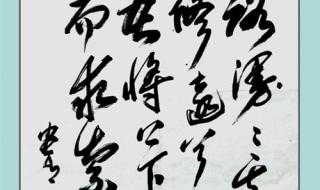 路漫々其
修遠兮
吾將上下
而求索